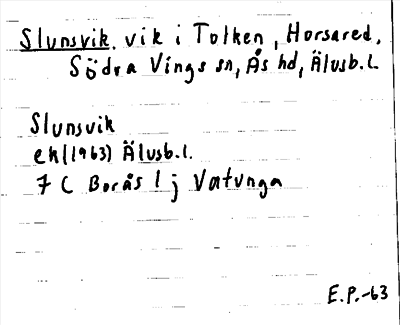 Slunsvik, vik i Tolken, Horsared,
Södra Vings sn, Ås hd, Älvsb. l.
Slunsvik
ek (1963) Älvsb. l.
7 C Borås 1 j Vatunga
E.P.-63